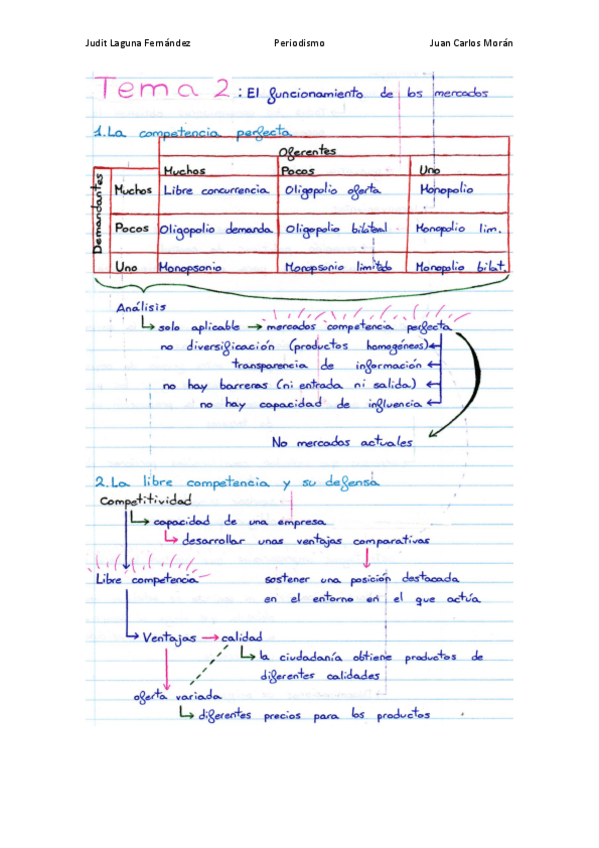 Judit Laguna Fernández Periodismo Juan Carlos Morán
Tema 2: El funcionamiento de los mercados
1. La competencia perfecta
Oferentes
Muchos Pocos Uno
Demandantes
Muchos Libre concurrencia Oligopolio oferta Monopolio
Pocos Oligopolio demanda Oligopolio bilateral Monopolio lim.
Uno Monopsonio Monopsonio limitado Monopolio bilat.
Análisis
↳ solo aplicable → mercados competencia perfecta
no diversificación (productos homogéneos) ←
transparencia de información ←
no hay barreras (ni entrada ni salida) ←
no hay capacidad de influencia ←
No mercados actuales
2. La libre competencia y su defensa
Competitividad
↳ capacidad de una empresa
↳ desarrollar unas ventajas comparativas
Libre competencia
sostener una posición destacada
en el entorno en el que actúa
↳ Ventajas → calidad
↳ la ciudadanía obtiene productos de
diferentes calidades
oferta variada
↳ diferentes precios para los productos